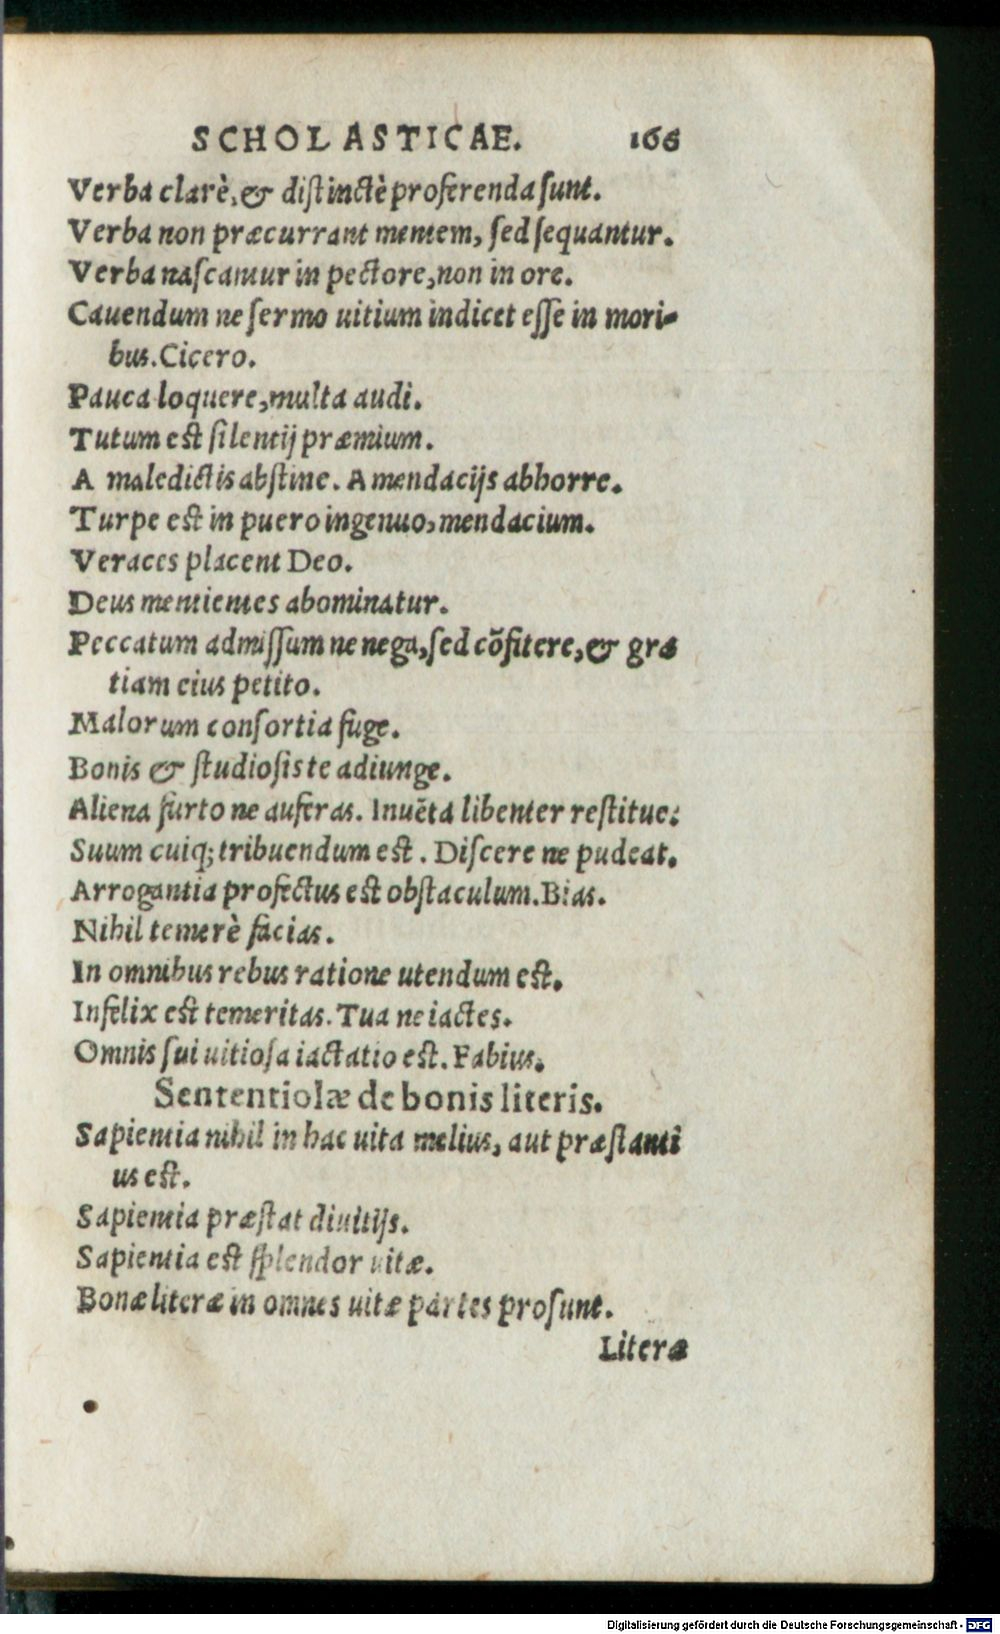 SCHOLASTICAE. 166
Verba clarè, & distinctè proferenda sunt.
Verba non præcurrant mentem, sed sequantur.
Verba nascantur in pectore, non in ore.
Cauendum ne sermo uitium indicet esse in mori-
bus. Cicero.
Pauca loquere, multa audi.
Tutum est silentij præmium.
A maledictis abstine. A mendacijs abhorre.
Turpe est in puero ingenuo, mendacium.
Veraces placent Deo.
Deus mentientes abominatur.
Peccatum admissum ne nega, sed cõfitere, & gra
tiam eius petito.
Malorum consortia fuge.
Bonis & studiosis te adiunge.
Aliena furto ne auferas. Inuẽta libenter restitue:
Suum cuiq; tribuendum est. Discere ne pudeat.
Arrogantia profectus est obstaculum. Bias.
Nihil temerè facias.
In omnibus rebus ratione utendum est.
Infelix est temeritas. Tua ne iactes.
Omnis sui uitiosa iactatio est. Fabius.
Sententiolæ de bonis literis.
Sapientia nihil in hac uita melius, aut præstanti
us est.
Sapientia præstat diuitijs.
Sapientia est splendor uitæ.
Bonæ literæ in omnes uitæ partes prosunt.
Literæ
Digitalisierung gefördert durch die Deutsche Forschungsgemeinschaft - DFG